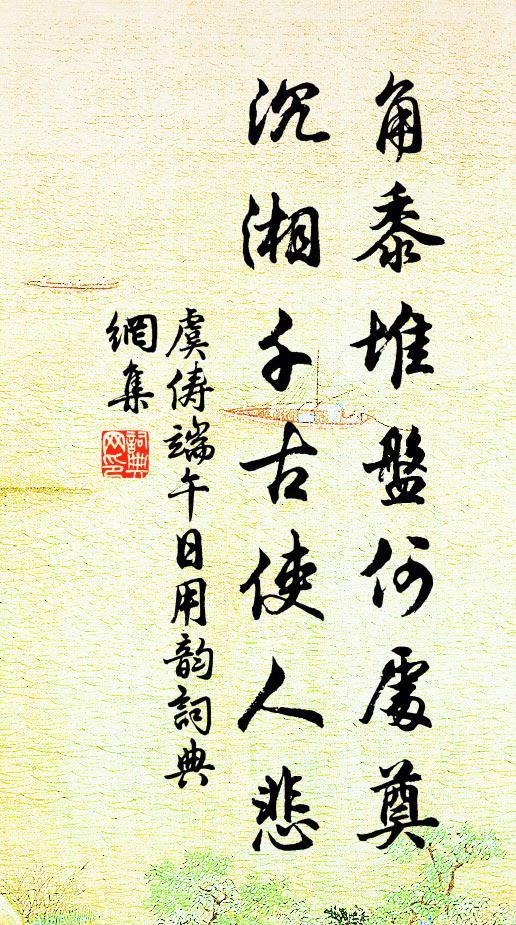 角黍堆盤何處奠
沉湘千古使人悲
虞儔端午日用韵詞典
網集
詞典網印